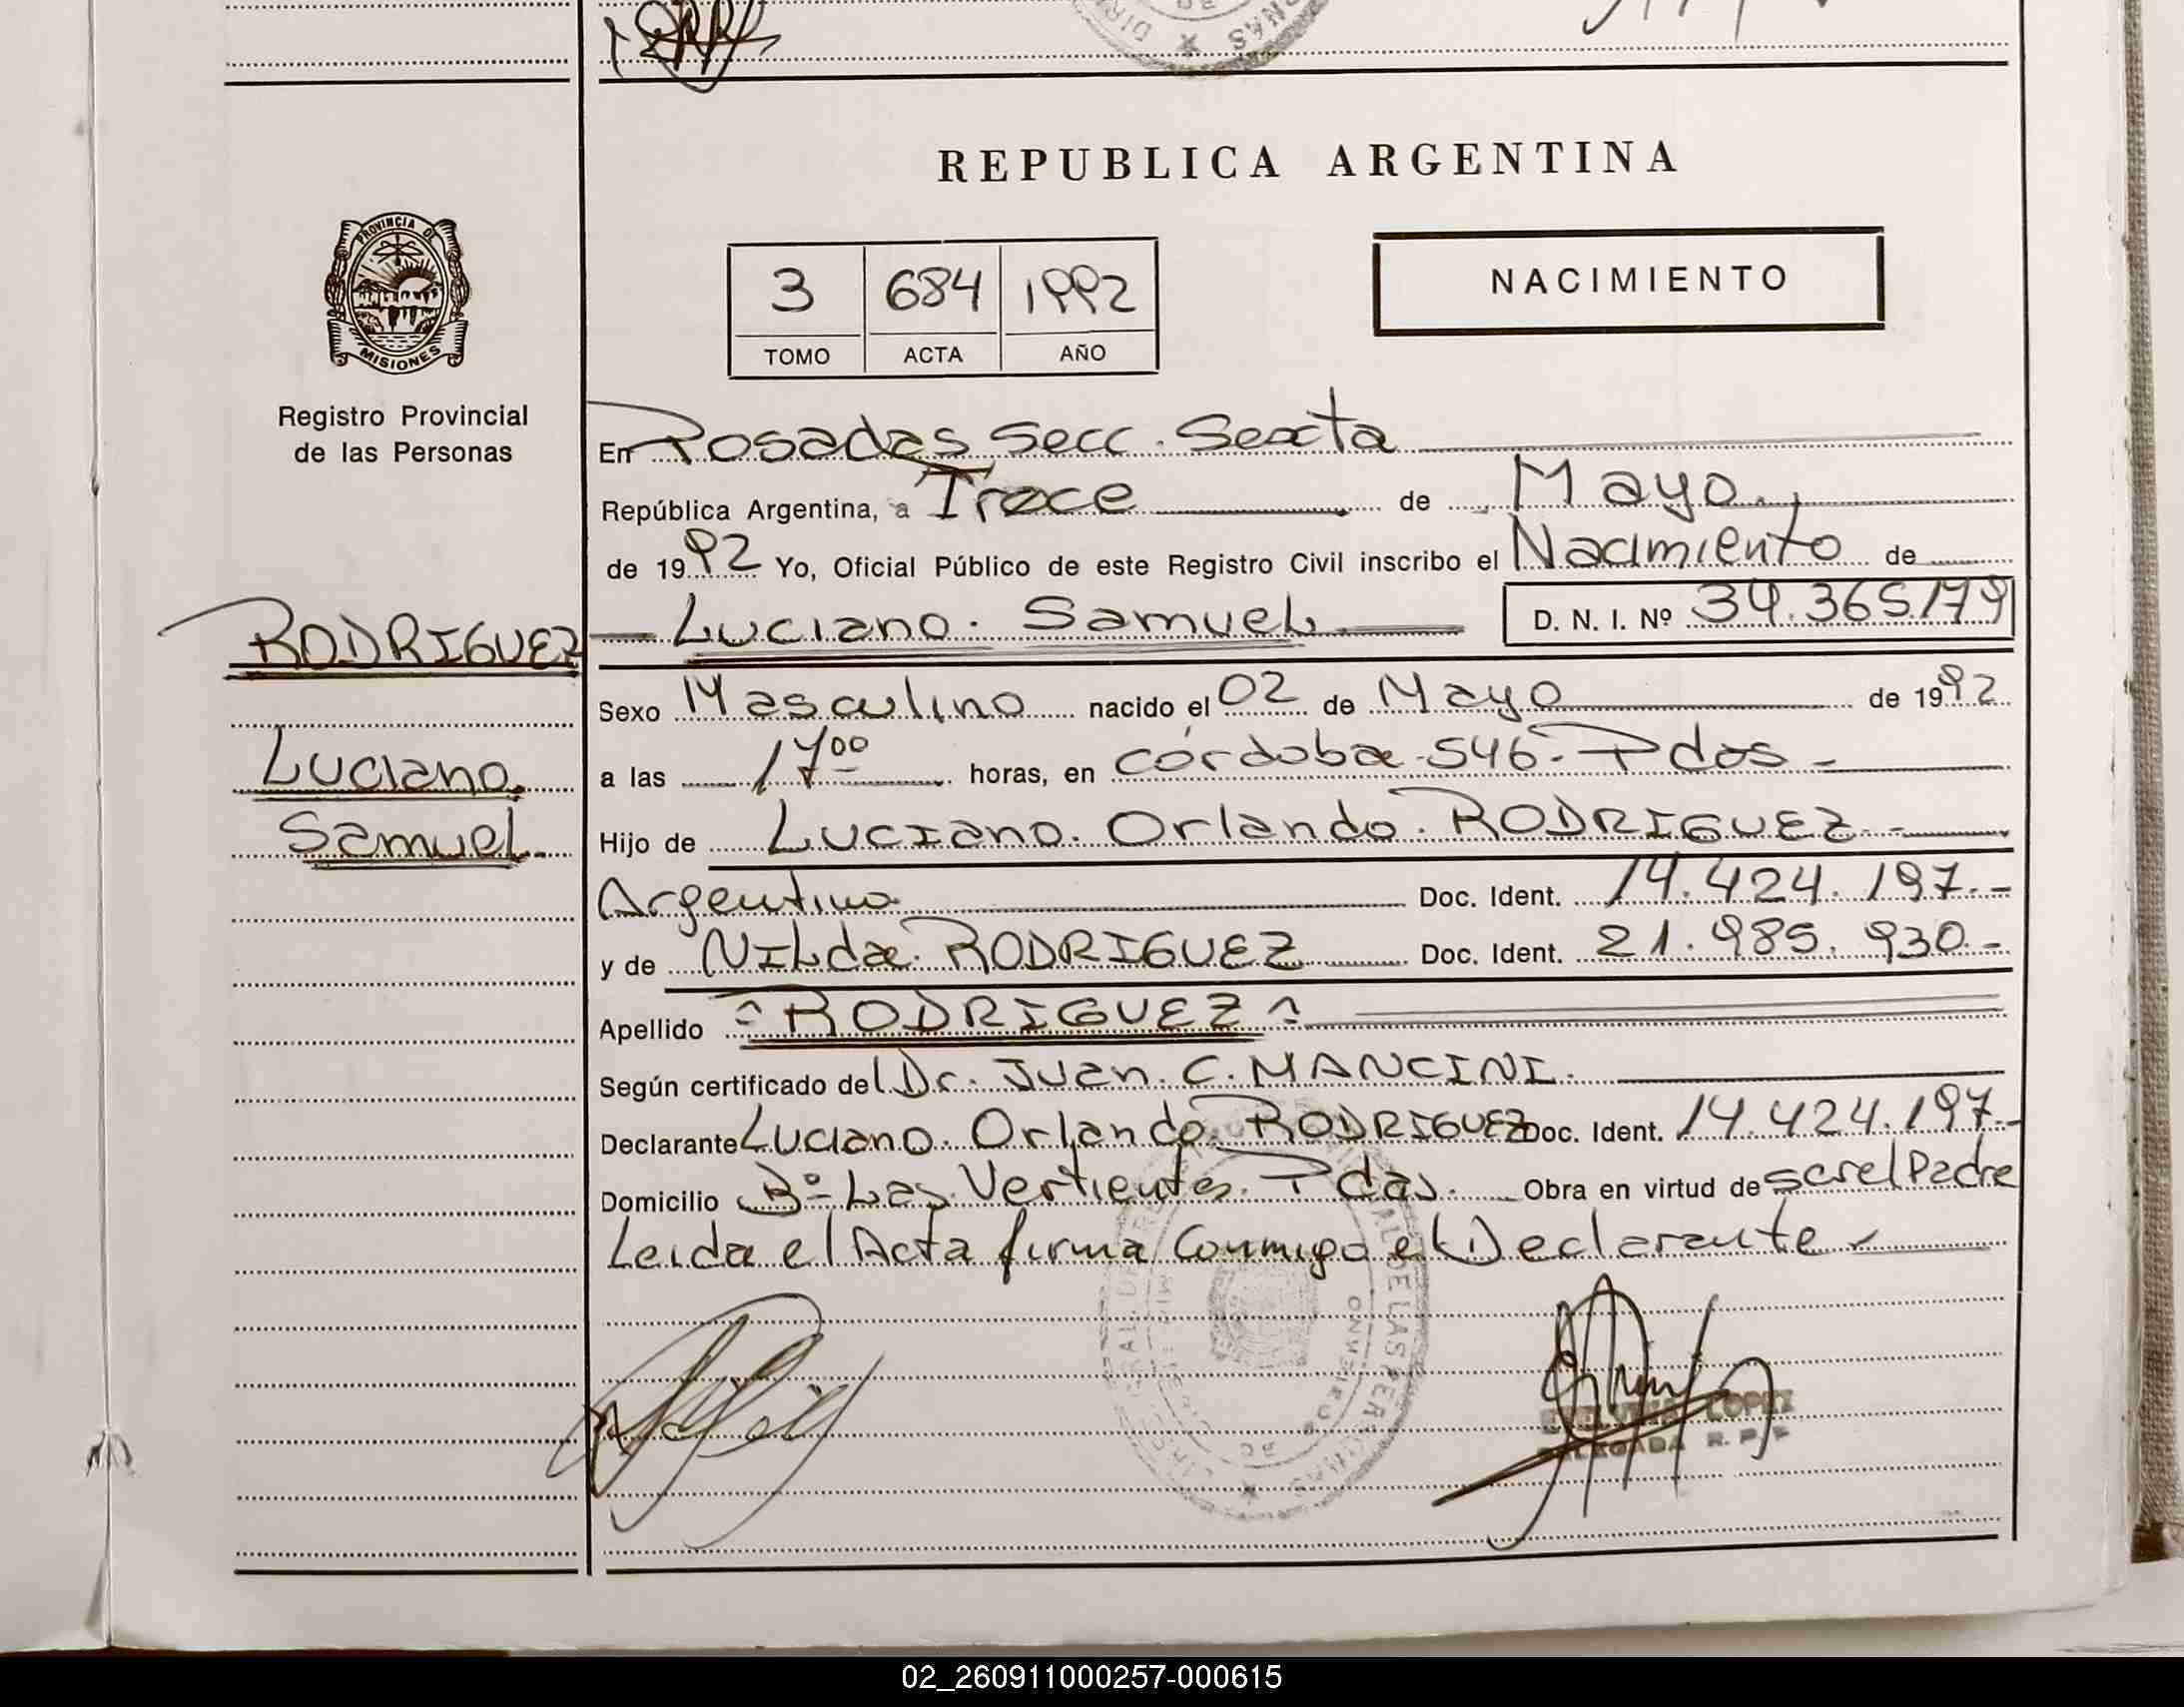 REPUBLICA ARGENTINA
PROVINCIA DE
MISIONES
Registro Provincial
de las Personas
3 684 1992
TOMO ACTA AÑO
NACIMIENTO
RODRIGUEZ
Luciano.
Samuel.
En Posadas Secc. Sexta
República Argentina, a Trece de Mayo.
de 1992 Yo, Oficial Público de este Registro Civil inscribo el Nacimiento de
Luciano. Samuel. D. N. I. Nº 34.365.179
Sexo Masculino nacido el 02 de Mayo de 1992.
a las 17⁰⁰ horas, en córdoba-546-Pdas-
Hijo de Luciano. Orlando. RODRIGUEZ.-
Argentino Doc. Ident. 14.424.197.-
y de Nilda. RODRIGUEZ Doc. Ident. 21.985.930.-
Apellido RODRIGUEZ
Según certificado del Dr. Juan. C. MANCINI.
Declarante Luciano. Orlando. RODRIGUEZ Doc. Ident. 14.424.197.-
Domicilio Bº- Las Vertientes. Pdas. Obra en virtud de ser el Padre
Leida el Acta firma Conmigo el Declarante
LOPEZ
DELEGADA R. P. P
02_260911000257-000615